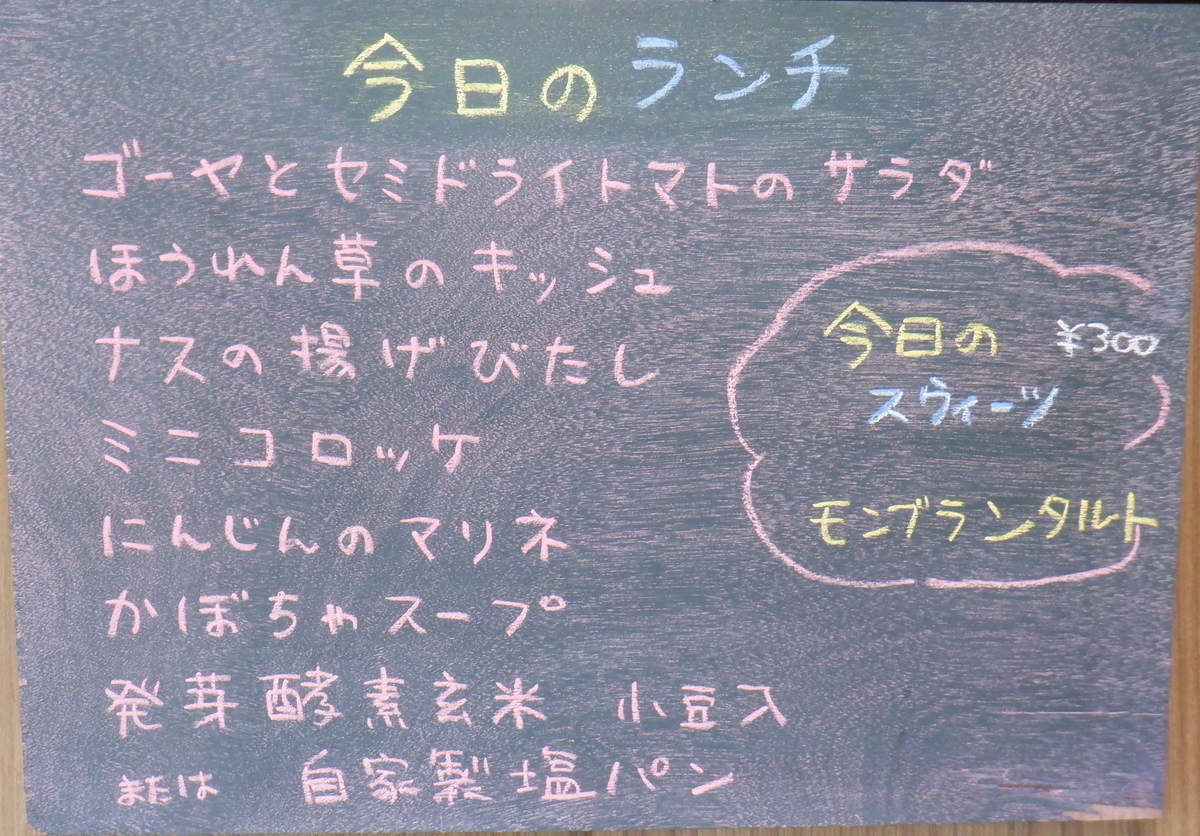 今日のランチ
ゴーヤとセミドライトマトのサラダ
ほうれん草のキッシュ
ナスの揚げびたし
ミニコロッケ
にんじんのマリネ
かぼちゃスープ
発芽酵素玄米 小豆入
または 自家製塩パン
今日の ¥300
スウィーツ
モンブランタルト